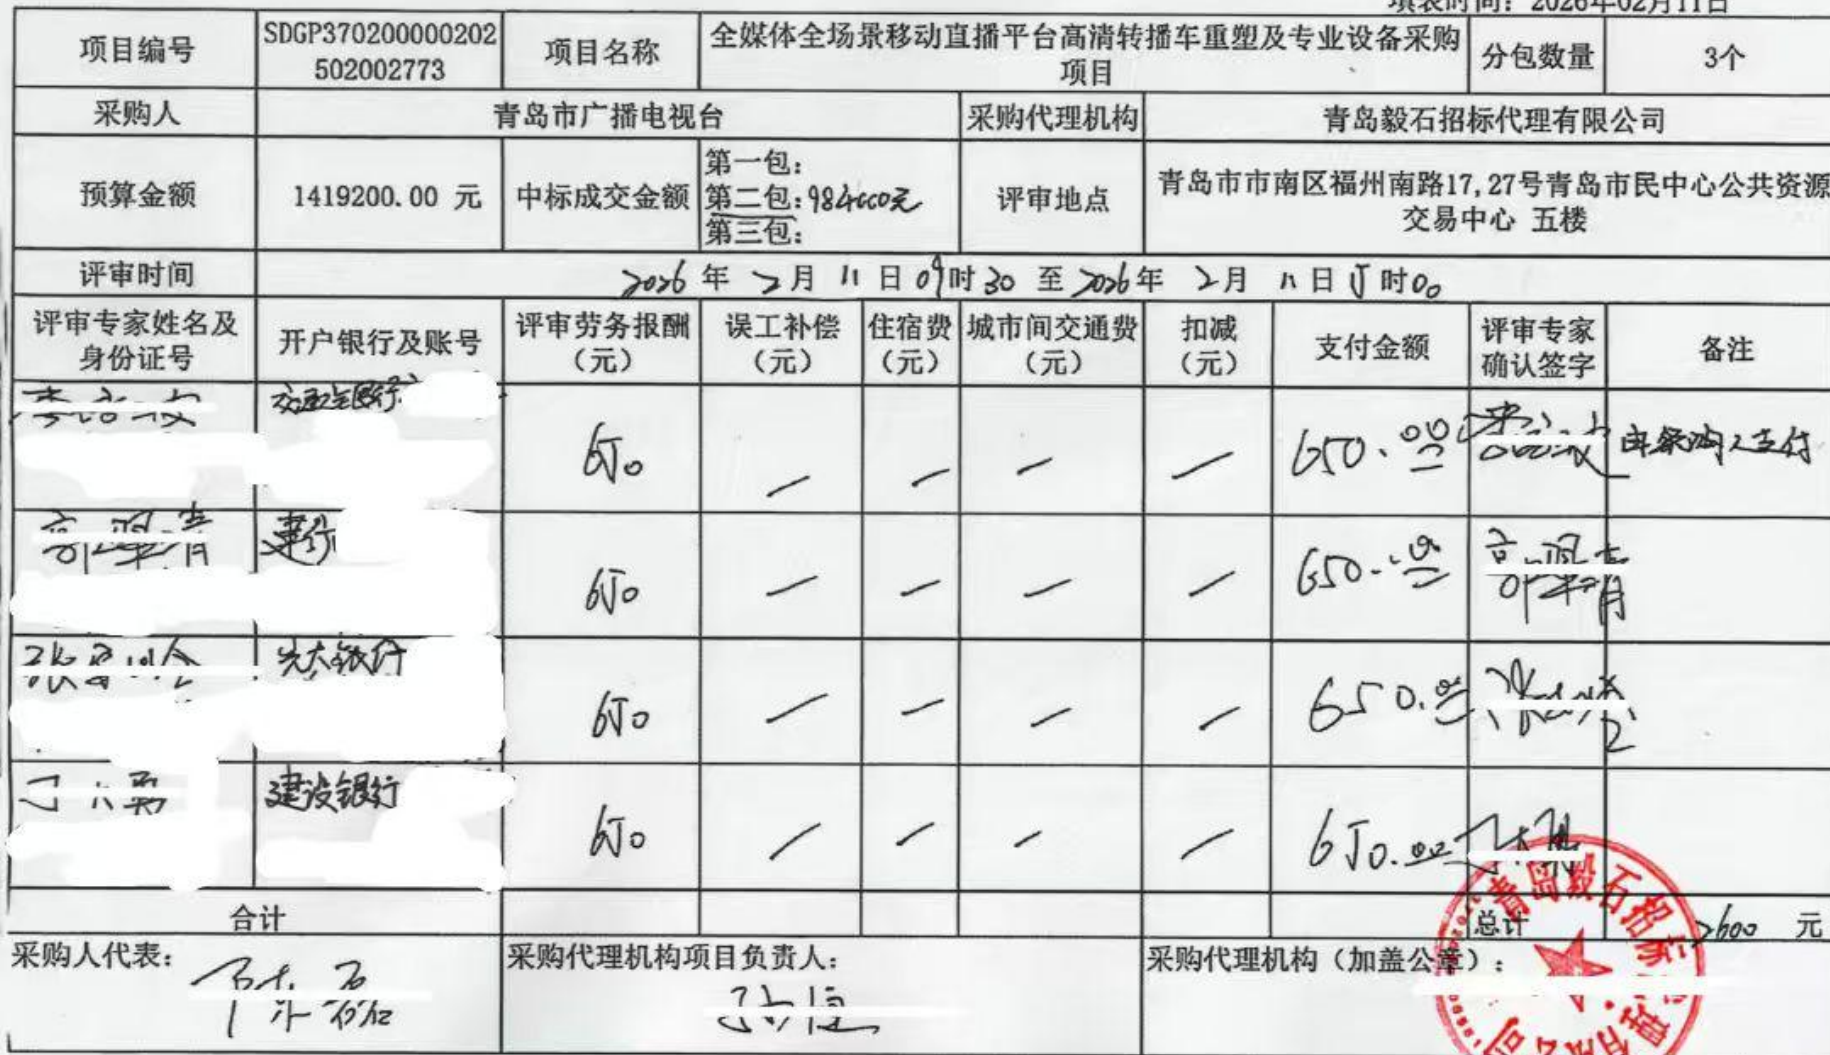 填表时间：2026年02月11日
项目编号
SDGP370200000202
502002773
项目名称
全媒体全场景移动直播平台高清转播车重塑及专业设备采购
项目
分包数量
3个
采购人
青岛市广播电视台
采购代理机构
青岛毅石招标代理有限公司
预算金额
1419200.00 元
中标成交金额
第一包：
第二包：984000元
第三包：
评审地点
青岛市市南区福州南路17,27号青岛市民中心公共资源
交易中心 五楼
评审时间
2026 年 2 月 11 日 09 时 30 至 2026 年 2 月 11 日 15 时 00
评审专家姓名及
身份证号
开户银行及账号
评审劳务报酬
（元）
误工补偿
（元）
住宿费
（元）
城市间交通费
（元）
扣减
（元）
支付金额
评审专家
确认签字
备注
交通银行
650 — — — — 650.00
由采购人支付
建行
650 — — — — 650.00
光大银行
650 — — — — 650.00
建设银行
650 — — — — 650.00
合计
总计
2600 元
采购人代表：
采购代理机构项目负责人：
采购代理机构（加盖公章）：
青岛毅石招标